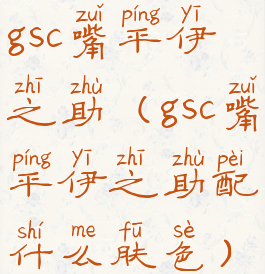 zuǐ píng yī
gsc嘴平伊
zhī zhù zuǐ
之助（gsc嘴
píng yī zhī zhù pèi
平伊之助配
shí me fū sè
什么肤色）